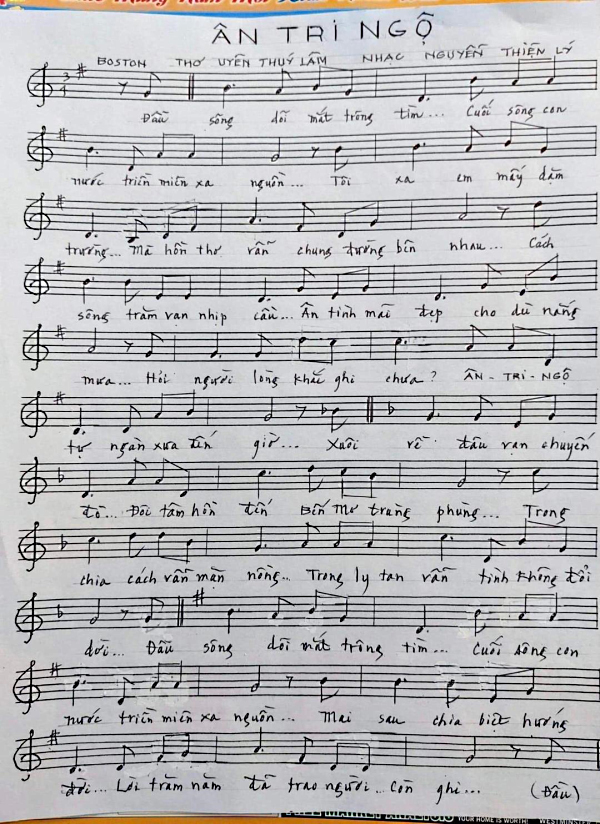 ÂN TRI NGỘ
BOSTON THƠ UYÊN THUÝ LÂM NHẠC NGUYỄN THIỆN LÝ
3
4
Đầu sông dõi mắt trông tìm... Cuối sông con
nước triền miên xa nguồn... Tôi xa em mấy dặm
trường... Mà hồn thơ vẫn chung đường bên nhau... Cách
sông trăm vạn nhịp cầu... Ân tình mãi đẹp cho dù nắng
mưa... Hỏi người lòng khắc ghi chưa? ÂN-TRI-NGỘ
tự ngàn xưa đến giờ... Xuôi về đâu vạn chuyến
đò... Đôi tâm hồn đến Bến Mơ trăng phùng... Trong
chia cách vẫn mặn nồng... Trong ly tan vẫn tình không đổi
dời... Đầu sông dõi mắt trông tìm... Cuối sông con
nước triền miên xa nguồn... Mai sau chia biệt hướng
đời... Lời trăm năm đã trao người... Còn ghi... (Đầu)
YOUR HOME IS WORTH! WESTMINSTER